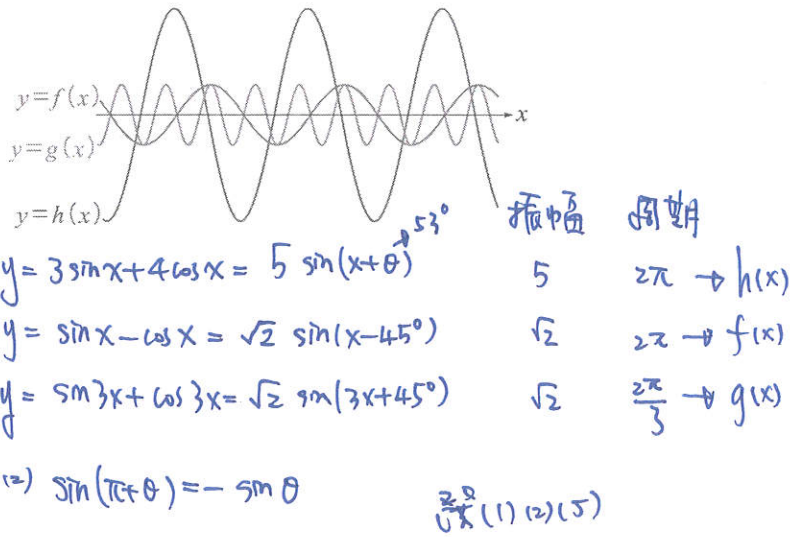 y=f(x)
x
y=g(x)
y=h(x)
53°
振幅 周期
y = 3 sin x + 4 cos x = 5 sin(x+θ) 5 2π → h(x)
y = sin x - cos x = √2 sin(x-45°) √2 2π → f(x)
y = sin 3x + cos 3x = √2 sin(3x+45°) √2 2π/3 → g(x)
(2) sin(π+θ) = - sin θ
選 (1) (2) (5)